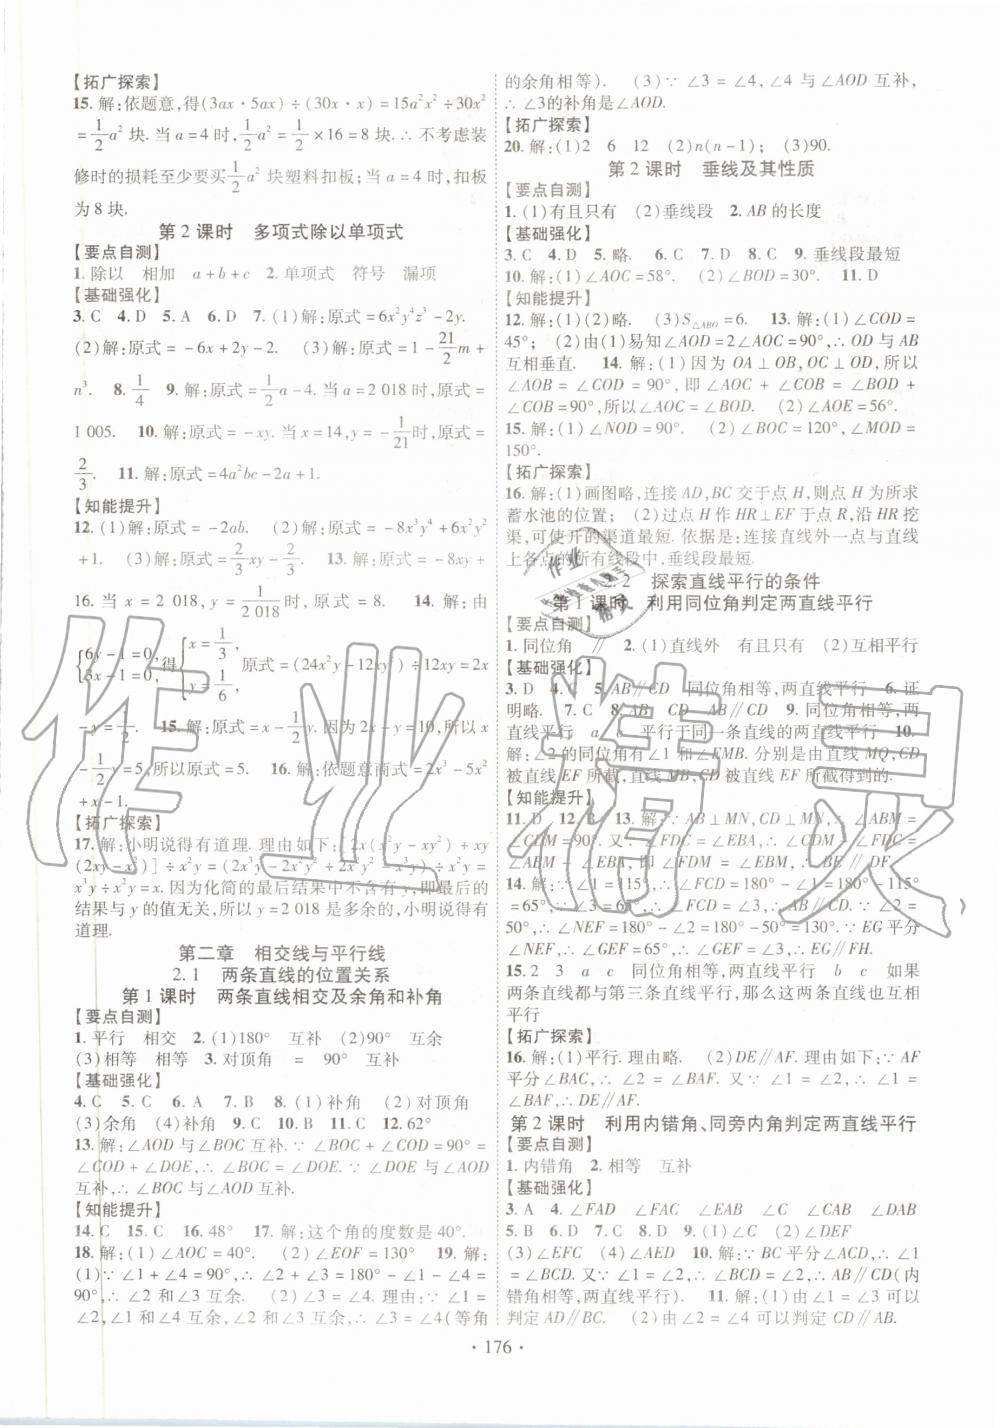 【拓广探索】
15. 解:依题意,得(3ax·5ax)÷(30x·x)=15a²x²÷30x²
=1/2a²块. 当a=4时,1/2a²=1/2×16=8块. ∴不考虑装
修时的损耗至少要买1/2a²块塑料扣板;当a=4时,扣板
为8块.
第2课时 多项式除以单项式
【要点自测】
1. 除以 相加 a+b+c 2. 单项式 符号 漏项
【基础强化】
3. C 4. D 5. A 6. D 7. (1)解:原式=6x²y⁴z³-2yz.
(2)解:原式=-6x+2y-2. (3)解:原式=1-21/2m+
n³. 8. 1/4 9. 解:原式=1/2a-4. 当a=2 018时,原式=
1 005. 10. 解:原式=-xy. 当x=14,y=-1/21时,原式=
2/3. 11. 解:原式=4a²bc-2a+1.
【知能提升】
12. (1)解:原式=-2ab. (2)解:原式=-8x³y⁴+6x²y²
+1. (3)解:原式=2/3xy-2/3x. 13. 解:原式=-8xy+
16. 当x=2 018,y=1/2 018时,原式=8. 14. 解:由
{6y-1=0, 3x-1=0,得{x=1/3, y=1/6,原式=(24x²y-12xy²)÷12xy=2x
-y=1/2. 15. 解:原式=x-1/2y. 因为2x-y=10,所以x
-1/2y=5,所以原式=5. 16. 解:依题意商式=2x³-5x²
+x-1.
【拓广探索】
17. 解:小明说得有道理. 理由如下:[2x(x²y-xy²)+xy
道理.
第二章 相交线与平行线
2.1 两条直线的位置关系
第1课时 两条直线相交及余角和补角
【要点自测】
1. 平行 相交 2. (1)180° 互补 (2)90° 互余
(3)相等 相等 3. 对顶角 = 90° 互补
【基础强化】
4. C 5. C 6. A 7. B 8. (1)补角 (2)对顶角
(3)余角 (4)补角 9. C 10. B 11. C 12. 62°
13. 解:∠AOD与∠BOC互补. ∵∠BOC+∠COD=90°=
∠COD+∠DOE,∴∠BOC=∠DOE. ∵∠DOE与∠AOD
互补,∴∠BOC与∠AOD互补.
【知能提升】
14. C 15. C 16. 48° 17. 解:这个角的度数是40°.
18. 解:(1)∠AOC=40°. (2)∠EOF=130° 19. 解:
(1)∵∠1+∠4=90°,∴∠1和∠4互余. ∵∠2+∠3=
90°,∴∠2和∠3互余. (2)∠3=∠4. 理由:∵∠1=
∠2,∠1和∠4互余,∠2和∠3互余,∴∠3=∠4(等角
的余角相等). (3)∵∠3=∠4,∠4与∠AOD互补,
∴∠3的补角是∠AOD.
【拓广探索】
20. 解:(1)2 6 12 (2)n(n-1); (3)90.
第2课时 垂线及其性质
【要点自测】
1. (1)有且只有 (2)垂线段 2. AB的长度
【基础强化】
3. C 4. D 5. 略. 6. C 7. C 8. D 9. 垂线段最短
10. 解:(1)∠AOC=58°. (2)∠BOD=30°. 11. D
【知能提升】
12. 解:(1)(2)略. (3)S△ABO=6. 13. 解:(1)∠COD=
45°; (2)由(1)易知∠AOD=2∠AOC=90°,∴OD与AB
互相垂直. 14. 解:(1)因为OA⊥OB,OC⊥OD,所以
∠AOB=∠COD=90°,即∠AOC+∠COB=∠BOD+
∠COB=90°,所以∠AOC=∠BOD. (2)∠AOE=56°.
15. 解:(1)∠NOD=90°. (2)∠BOC=120°,∠MOD=
150°.
【拓广探索】
16. 解:(1)画图略,连接AD,BC交于点H,则点H为所求
蓄水池的位置; (2)过点H作HR⊥EF于点R,沿HR挖
渠,可使开的渠道最短. 依据是:连接直线外一点与直线
上各点的所有线段中,垂线段最短.
2.2 探索直线平行的条件
第1课时 利用同位角判定两直线平行
【要点自测】
1. 同位角 ∥ 2. (1)直线外 有且只有 (2)互相平行
【基础强化】
3. D 4. C 5. AB∥CD 同位角相等,两直线平行 6. 证
明略. 7. C 8. AB∥CD 9. 同位角相等,两
直线平行 a c 平行于同一条直线的两直线平行 10.
解:∠2的同位角有∠1和∠EMB. 分别是由直线MQ,CD
被直线EF所截,直线AB,CD被直线EF所截得到的.
【知能提升】
11. D 12. B 13. 解:∵AB⊥MN,CD⊥MN,∴∠ABM=
∠CDM=90°. ∵∠FDC=∠EBA,∴∠CDM-∠FDC=
∠ABM-∠EBA,即∠FDM=∠EBM,∴BE∥DF.
14. 解:∵∠1=115°,∴∠FCD=180°-∠1=180°-115°
=65°,∵∠3=∠FCD=65°. ∵∠2=50°,
∠NEF=180°-∠2=180°-50°=130°. ∵EG平分
∠NEF,∴∠GEF=65°,∴∠GEF=∠3,∴EG∥FH.
15. 2 3 a c 同位角相等,两直线平行 b c 如果
两条直线都与第三条直线平行,那么这两条直线也互相
平行
【拓广探索】
16. 解:(1)平行. 理由略. (2)DE∥AF. 理由如下:∵AF
平分∠BAC,∴∠1=∠BAF. 又∵∠1=∠2,∴∠2=
∠BAF,∴DE∥AF.
第2课时 利用内错角、同旁内角判定两直线平行
【要点自测】
1. 内错角 2. 相等 互补
【基础强化】
3. A 4. ∠FAD ∠FAC ∠EAB ∠C ∠CAB ∠DAB
5. B 6. D 7. C 8. D 9. (1)∠C (2)∠DEF
(3)∠EFC (4)∠AED 10. 解:∵BC平分∠ACD,∴∠1
=∠BCD. 又∵∠1=∠2,∴∠2=∠BCD,∴AB∥CD(内
错角相等,两直线平行) 11. 解:(1)由∠A=∠1可以
判定AD∥BC. (2)由∠2=∠4可以判定AB∥CD.
·176·
作业精灵